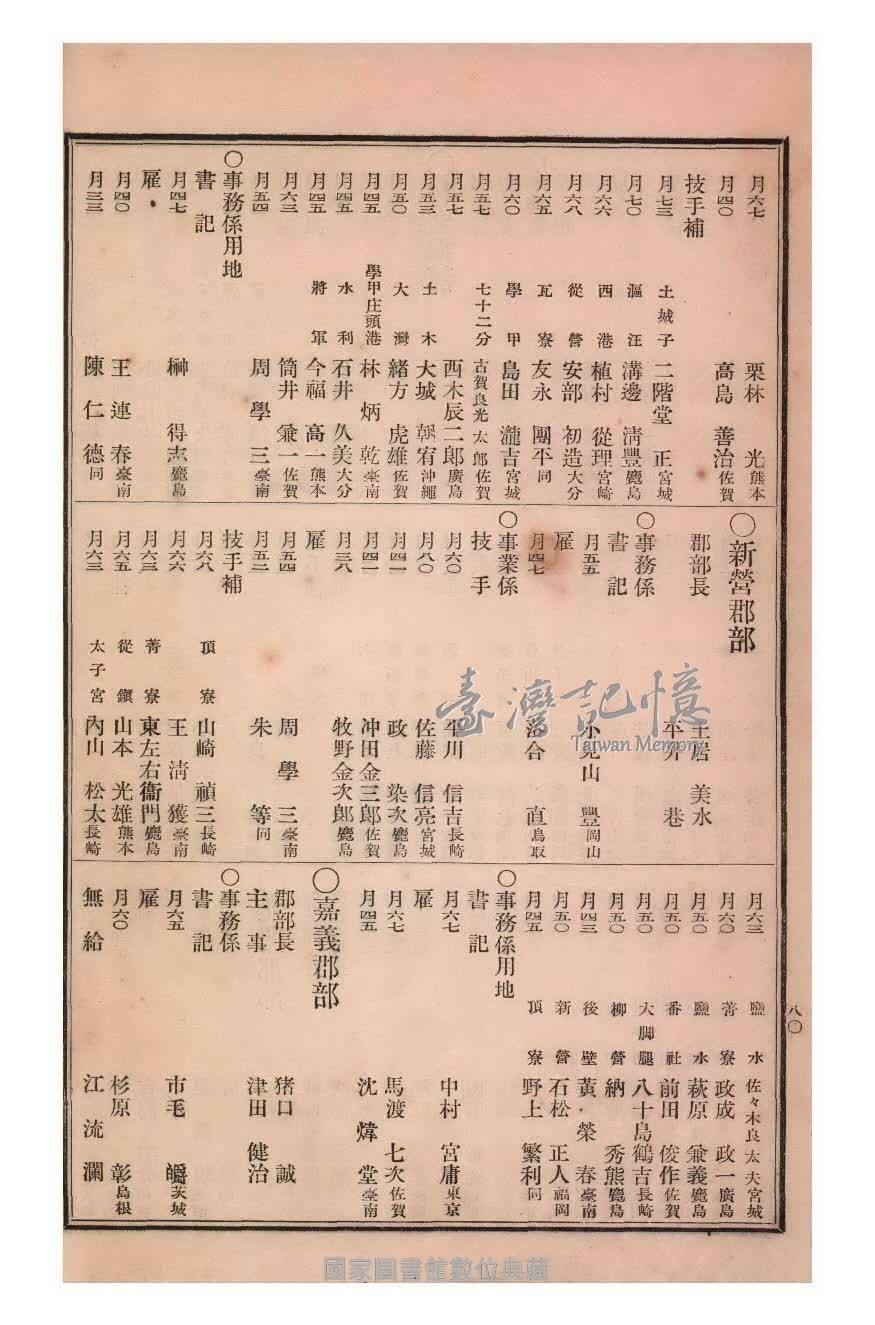 月六七 栗林 光熊本
月四〇 高島 善治佐賀
技手補
月七三 土城子 二階堂 正宮城
月七〇 漚汪 溝邊 淸豐鹿島
月六六 西港 植村 從理宮崎
月六八 從營 安部 初造大分
月六五 瓦寮 友永 團平同
月六〇 學甲 島田 瀧吉宮城
月五七 七十二分 古賀良光太郎佐賀
月五七 西木辰二郎廣島
月五三 土木 大城 朝宥沖繩
月五〇 大灣 緒方 虎雄佐賀
月四五 學甲庄頭港 林 炳乾臺南
月四五 水利 石井 久美大分
月四五 將軍 今福 高一熊本
月六三 筒井 兼一佐賀
月五四 周學三臺南
〇事務係用地
書記
月四七 榊 得志鹿島
雇
月四〇 王連春臺南
月三三 陳仁德同
〇新營郡部
郡部長 土居 美水
平井 巷
〇事務係
書記
月五五 小見山 豐岡山
雇
月四七 落合 直鳥取
〇事業係
技手
月六〇 平川 信吉長崎
月八〇 佐藤 信亮宮城
月四一 政 染次鹿島
月四一 冲田金三郎佐賀
月三八 牧野金次郎鹿島
雇
月五四 周學三臺南
月五二 朱 等同
技手補
月六八 頂寮 山崎 禎三長崎
月六六 王淸獲臺南
月六三 菁寮 東左右衞門鹿島
月六五 從鎭 山本 光雄熊本
月六三 太子宮 內山 松太長崎
月六三 鹽水 佐々木良太夫宮城
月六〇 菁寮 政成 政一廣島
月五〇 鹽水 萩原 兼義鹿島
月五〇 番社 前田 俊作佐賀
月五〇 大脚腿 八十島鶴吉長崎
月五〇 柳營 納 秀熊鹿島
月四三 後壁 黃榮春臺南
月五〇 新營 石松 正人福岡
月四五 頂寮 野上 繁利同
〇事務係用地
書記
月六七 中村 宮庸東京
雇
月六七 馬渡 七次佐賀
月四五 沈煒堂臺南
〇嘉義郡部
郡部長 猪口 誠
主事 津田 健治
〇事務係
書記
月六五 市毛 皭茨城
雇
月六〇 杉原 彰島根
無給 江流瀾
八〇
臺灣記憶
Taiwan Memory
國家圖書館數位典藏